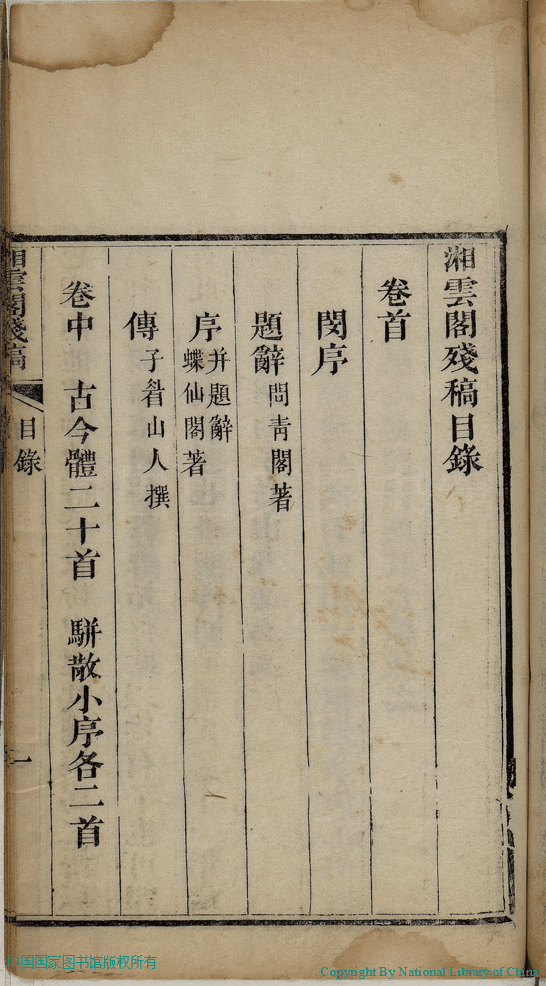 湘雲閣殘稿目錄
卷首
閔序
題辭 問青閣著
序 并題辭 蝶仙閣著
傳 子眷山人撰
卷中 古今體二十首 駢散小序各二首
湘雲閣殘稿 目錄 一
中国国家图书馆版权所有
Copyright By National Library of China